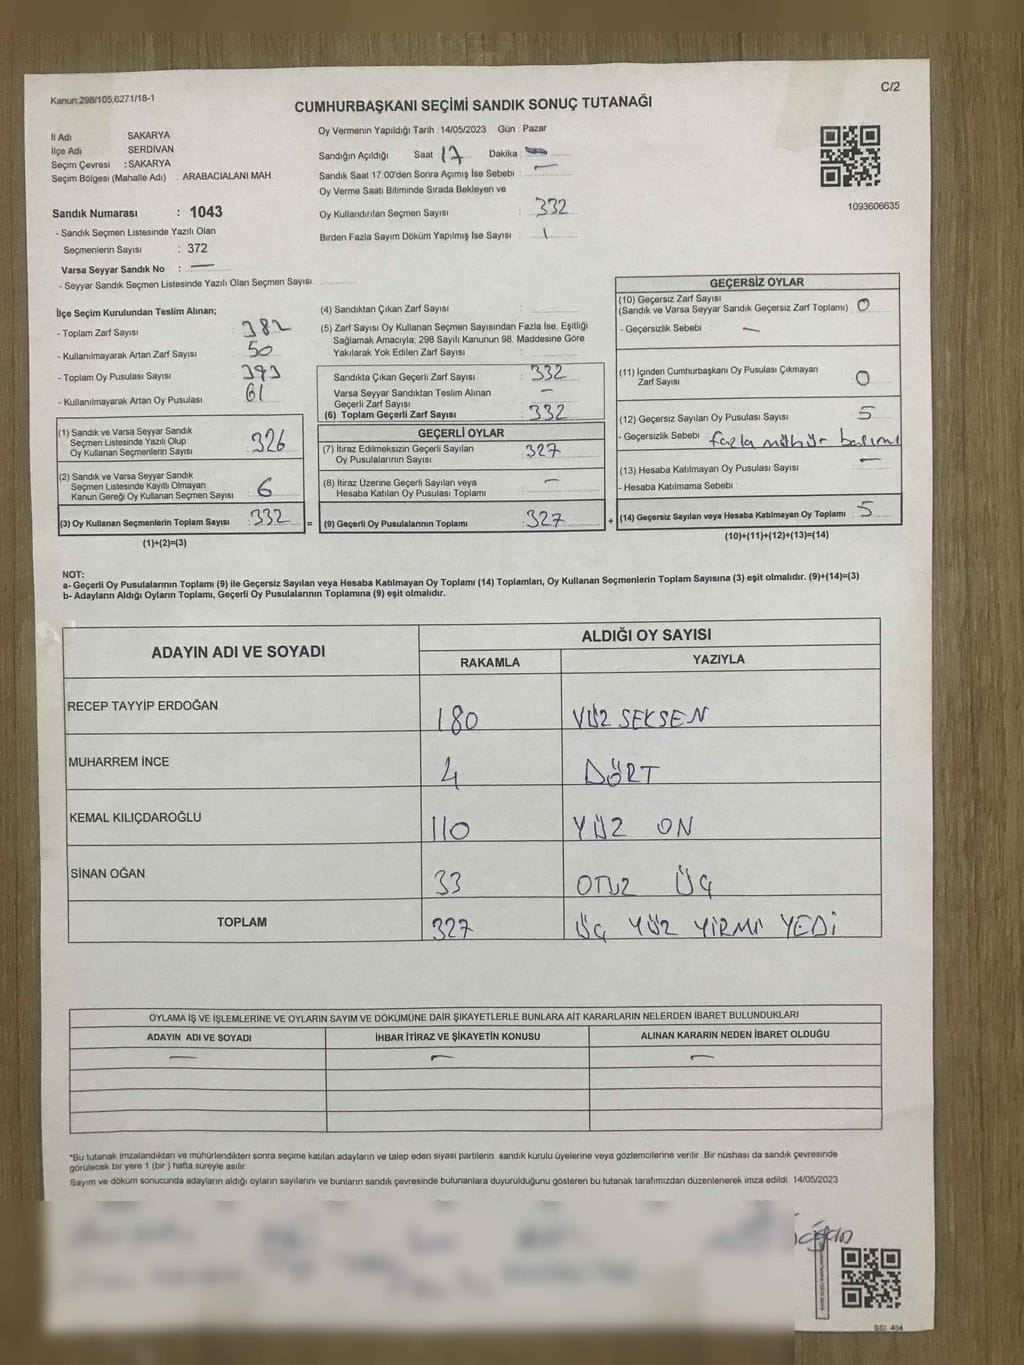 Kanun:298/105,6271/18-1
C/2
CUMHURBAŞKANI SEÇİMİ SANDIK SONUÇ TUTANAĞI
İl Adı : SAKARYA
İlçe Adı : SERDİVAN
Seçim Çevresi : SAKARYA
Seçim Bölgesi (Mahalle Adı) : ARABACIALANI MAH.
Sandık Numarası : 1043
- Sandık Seçmen Listesinde Yazılı Olan
Seçmenlerin Sayısı : 372
Varsa Seyyar Sandık No : —
- Seyyar Sandık Seçmen Listesinde Yazılı Olan Seçmen Sayısı
Oy Vermenin Yapıldığı Tarih : 14/05/2023 Gün : Pazar
Sandığın Açıldığı Saat 17 Dakika :
Sandık Saat 17:00'den Sonra Açımış İse Sebebi : —
Oy Verme Saati Bitiminde Sırada Bekleyen ve
Oy Kullandırılan Seçmen Sayısı : 332
Birden Fazla Sayım Döküm Yapılmış İse Sayısı : 1
1093606635
İlçe Seçim Kurulundan Teslim Alınan;
- Toplam Zarf Sayısı : 382
- Kullanılmayarak Artan Zarf Sayısı : 50
- Toplam Oy Pusulası Sayısı : 393
- Kullanılmayarak Artan Oy Pusulası : 61
(1) Sandık ve Varsa Seyyar Sandık
Seçmen Listesinde Yazılı Olup
Oy Kullanan Seçmenlerin Sayısı : 326
(2) Sandık ve Varsa Seyyar Sandık
Seçmen Listesinde Kayıtlı Olmayan
Kanun Gereği Oy Kullanan Seçmen Sayısı : 6
(3) Oy Kullanan Seçmenlerin Toplam Sayısı : 332 =
(1)+(2)=(3)
(4) Sandıktan Çıkan Zarf Sayısı :
(5) Zarf Sayısı Oy Kullanan Seçmen Sayısından Fazla İse, Eşitliği
Sağlamak Amacıyla; 298 Sayılı Kanunun 98. Maddesine Göre
Yakılarak Yok Edilen Zarf Sayısı :
Sandıkta Çıkan Geçerli Zarf Sayısı : 332
Varsa Seyyar Sandıktan Teslim Alınan
Geçerli Zarf Sayısı : —
(6) Toplam Geçerli Zarf Sayısı : 332
GEÇERLİ OYLAR
(7) İtiraz Edilmeksizin Geçerli Sayılan
Oy Pusulalarının Sayısı : 327
(8) İtiraz Üzerine Geçerli Sayılan veya
Hesaba Katılan Oy Pusulası Toplamı : —
(9) Geçerli Oy Pusulalarının Toplamı : 327 +
GEÇERSİZ OYLAR
(10) Geçersiz Zarf Sayısı
(Sandık ve Varsa Seyyar Sandık Geçersiz Zarf Toplamı) : 0
- Geçersizlik Sebebi : —
(11) İçinden Cumhurbaşkanı Oy Pusulası Çıkmayan
Zarf Sayısı : 0
(12) Geçersiz Sayılan Oy Pusulası Sayısı : 5
- Geçersizlik Sebebi : fazla mühür basımı
(13) Hesaba Katılmayan Oy Pusulası Sayısı : —
- Hesaba Katılmama Sebebi :
(14) Geçersiz Sayılan veya Hesaba Katılmayan Oy Toplamı : 5
(10)+(11)+(12)+(13)=(14)
NOT:
a- Geçerli Oy Pusulalarının Toplamı (9) ile Geçersiz Sayılan veya Hesaba Katılmayan Oy Toplamı (14) Toplamları, Oy Kullanan Seçmenlerin Toplam Sayısına (3) eşit olmalıdır. (9)+(14)=(3)
b- Adayların Aldığı Oyların Toplamı, Geçerli Oy Pusulalarının Toplamına (9) eşit olmalıdır.
ADAYIN ADI VE SOYADI ALDIĞI OY SAYISI
RAKAMLA YAZIYLA
RECEP TAYYİP ERDOĞAN 180 YÜZ SEKSEN
MUHARREM İNCE 4 DÖRT
KEMAL KILIÇDAROĞLU 110 YÜZ ON
SİNAN OĞAN 33 OTUZ ÜÇ
TOPLAM 327 ÜÇ YÜZ YİRMİ YEDİ
OYLAMA İŞ VE İŞLEMLERİNE VE OYLARIN SAYIM VE DÖKÜMÜNE DAİR ŞİKAYETLERLE BUNLARA AİT KARARLARIN NELERDEN İBARET BULUNDUKLARI
ADAYIN ADI VE SOYADI İHBAR İTİRAZ VE ŞİKAYETİN KONUSU ALINAN KARARIN NEDEN İBARET OLDUĞU
— — —
*Bu tutanak imzalandıktan ve mühürlendikten sonra seçime katılan adayların ve talep eden siyasi partilerin sandık kurulu üyelerine veya gözlemcilerine verilir. Bir nüshası da sandık çevresinde
görülecek bir yere 1 (bir ) hafta süreyle asılır.
Sayım ve döküm sonucunda adayların aldığı oyların sayılarını ve bunların sandık çevresinde bulunanlara duyurulduğunu gösteren bu tutanak tarafımızdan düzenlenerek imza edildi. 14/05/2023